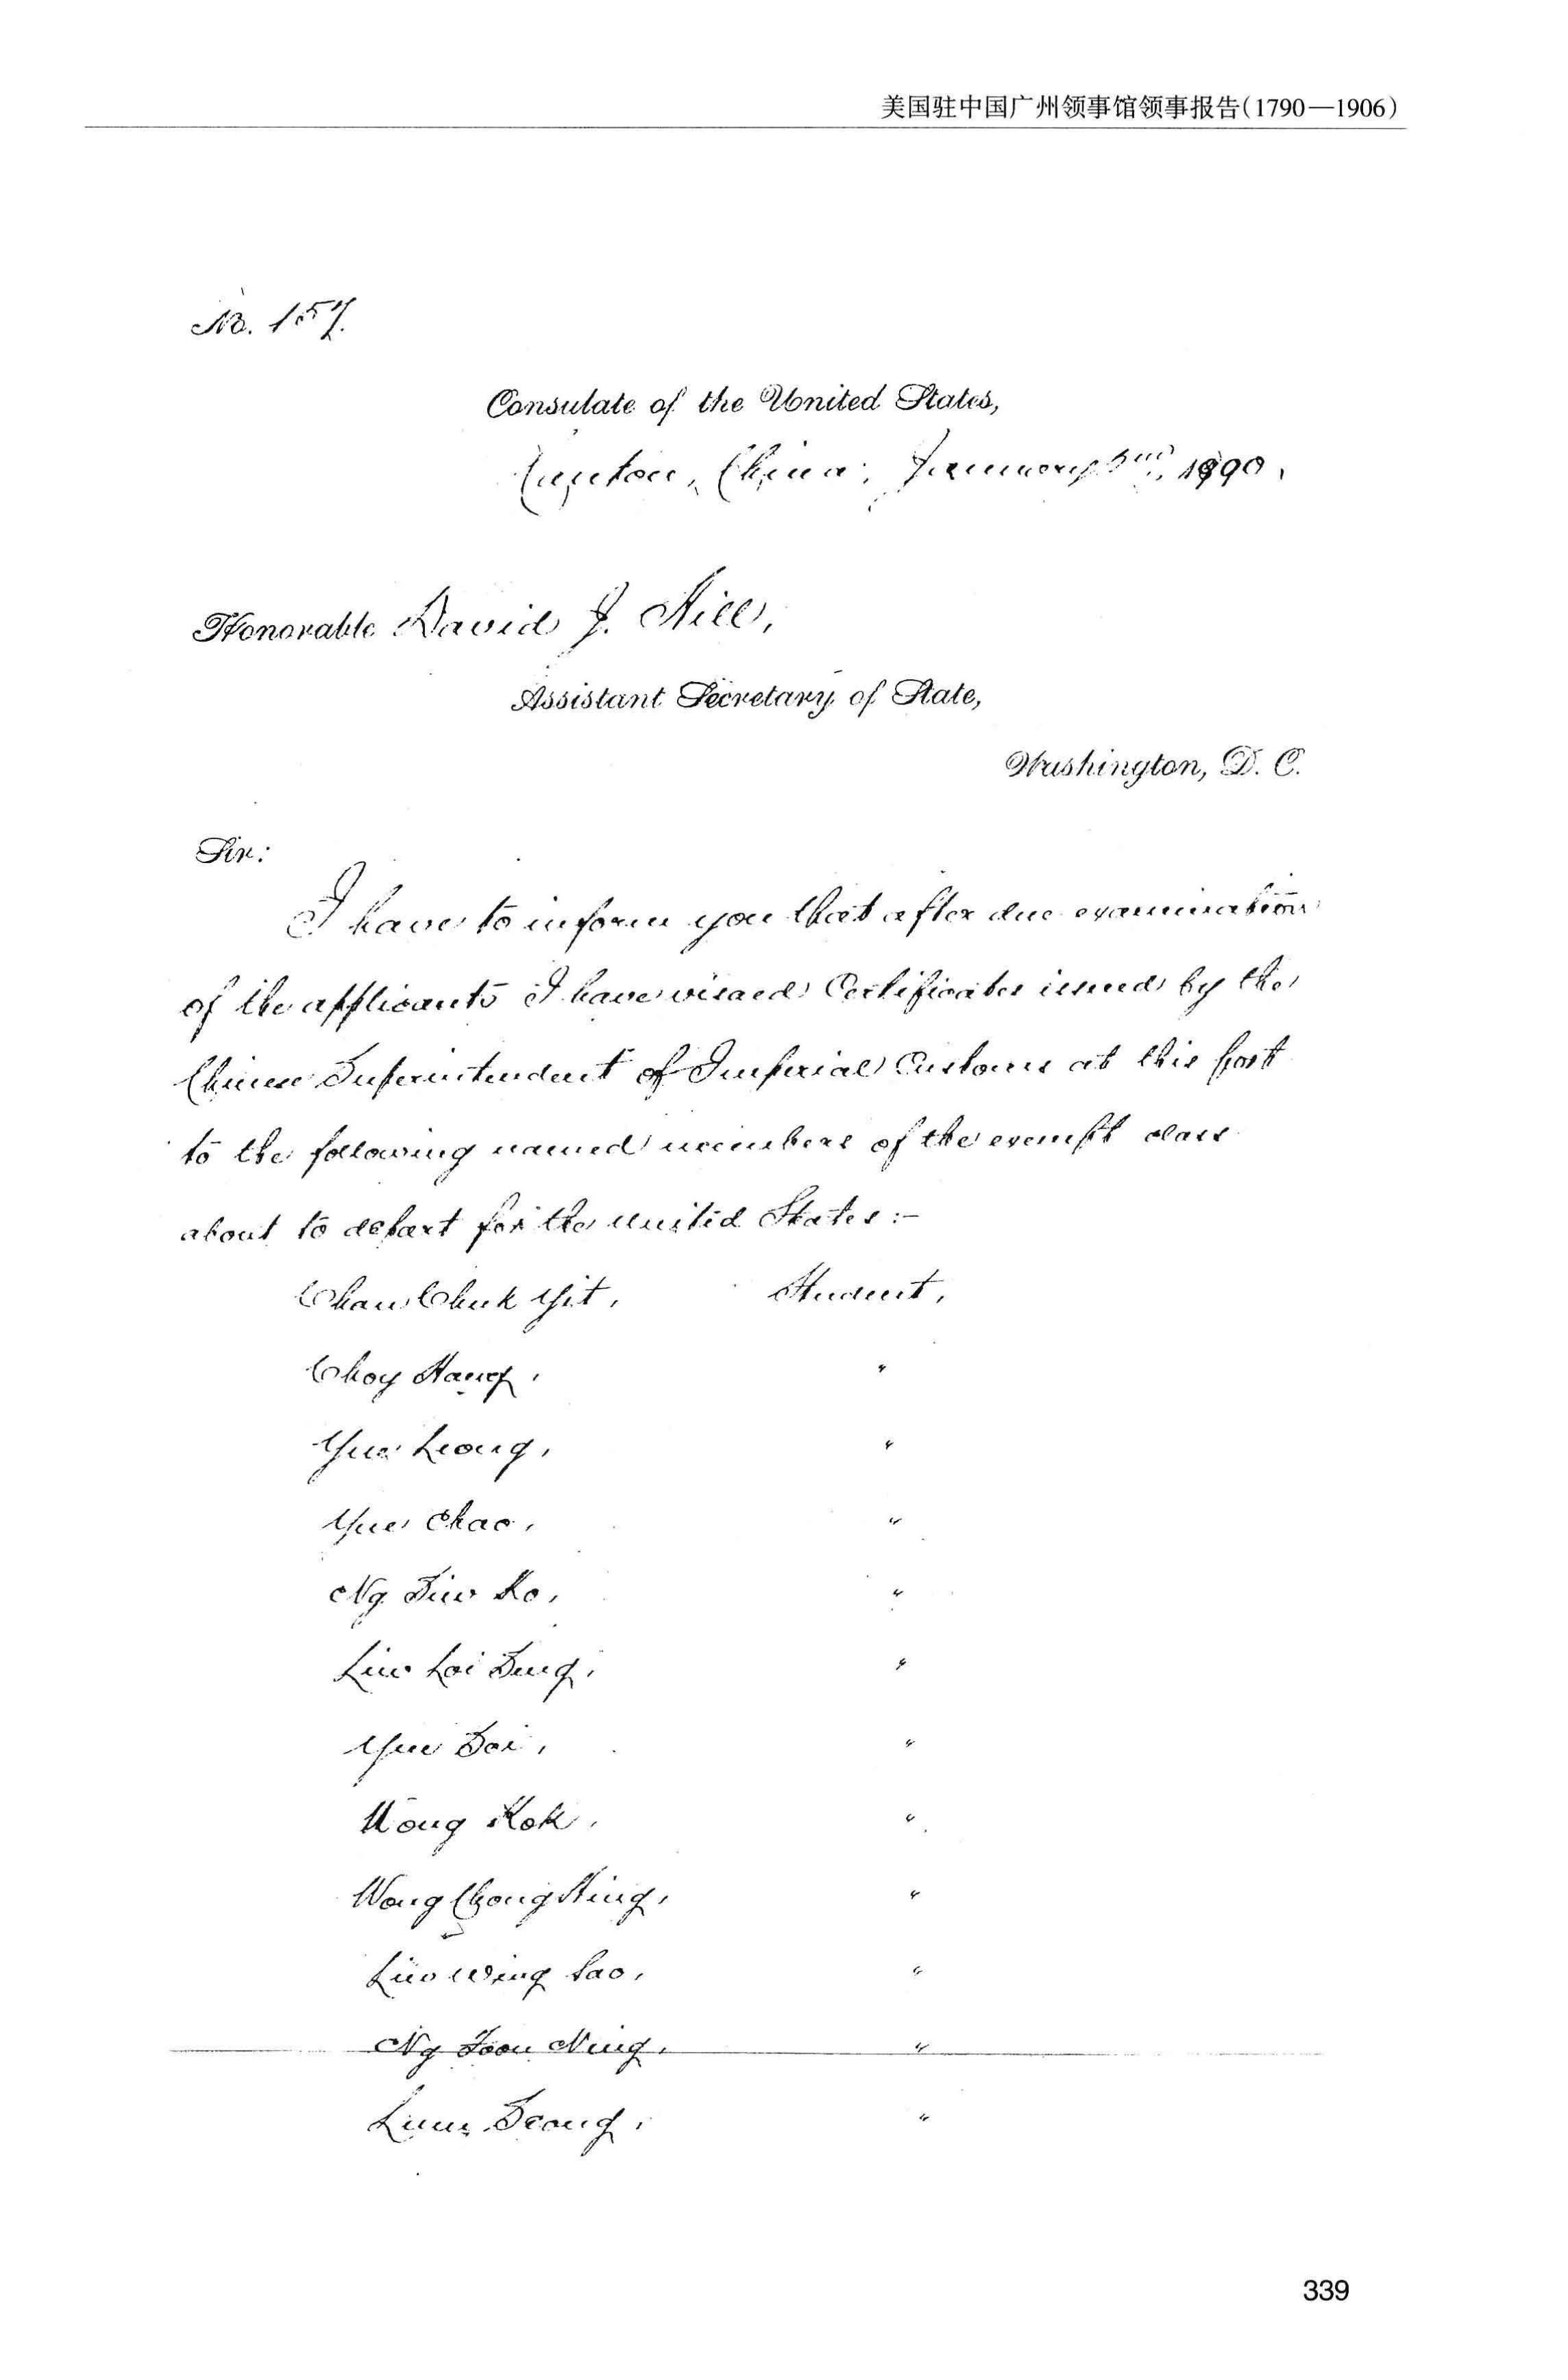 美国驻中国广州领事馆领事报告(1790—1906)
No. 157.
Consulate of the United States,
Canton, China, January 1890,
Honorable David J. Hill,
Assistant Secretary of State,
Washington, D. C.
Sir:
I have to inform you that after due examination
of the applicants I have visaed Certificates issued by the
Chinese Superintendent of Imperial Customs at this port
to the following named members of the exempt class
about to depart for the United States:-
Chan Chuk Yit, Student,
Choy Hang, "
Yue Leong, "
Yue Chao, "
Ng Siw Ko, "
Liw Loi Sung, "
Yue Soi, "
Wong Kok, "
Wong Chong Hing, "
Liw Wing Sao, "
Ng Toon Ning, "
Lum Seong, "
339